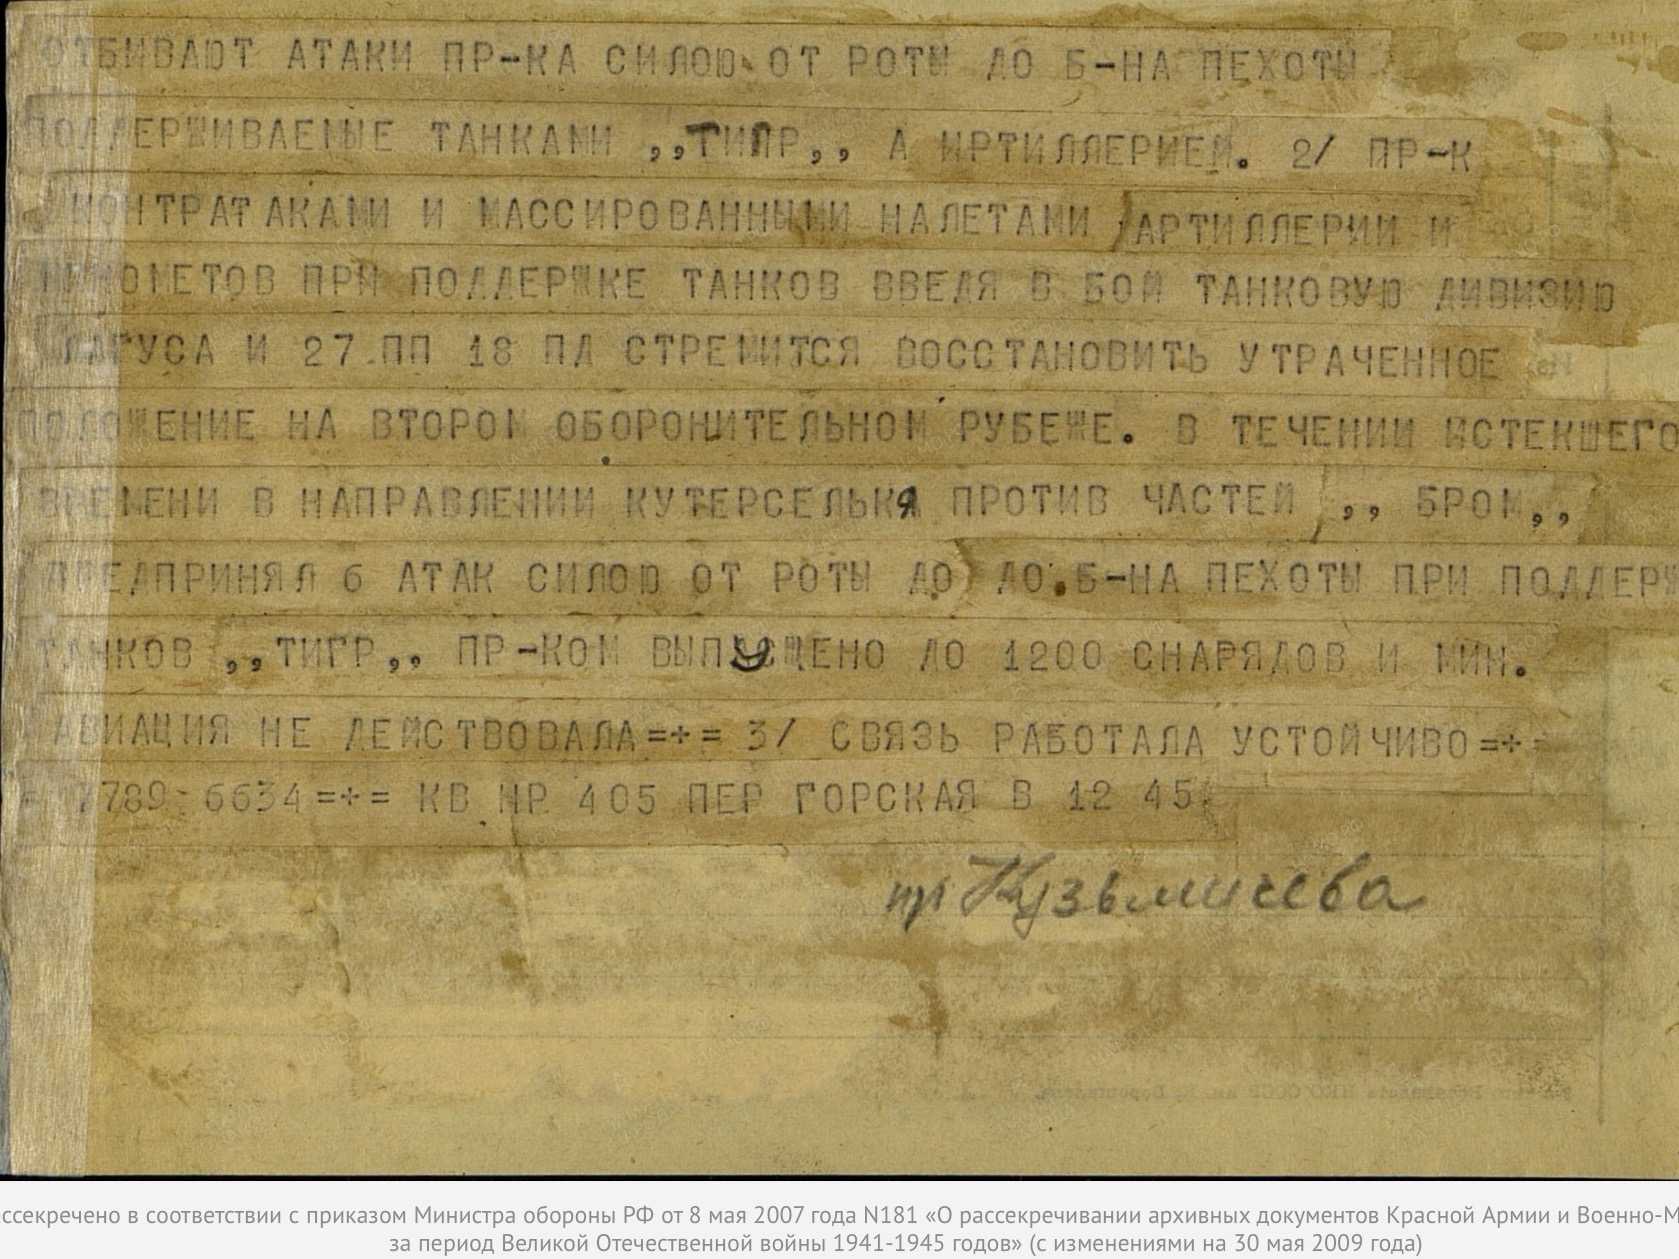 ОТБИВАЮТ АТАКИ ПР-КА СИЛОЮ ОТ РОТЫ ДО Б-НА ПЕХОТЫ
ПОДДЕРЖИВАЕМЫЕ ТАНКАМИ ,,ТИГР,, А АРТИЛЛЕРИЕЙ. 2/ ПР-К
КОНТРАТАКАМИ И МАССИРОВАННЫМИ НАЛЕТАМИ АРТИЛЛЕРИИ И
МИНОМЕТОВ ПРИ ПОДДЕРЖКЕ ТАНКОВ ВВЕДЯ В БОЙ ТАНКОВУЮ ДИВИЗИЮ
ЛАГУСА И 27 ПП 18 ПД СТРЕМИТСЯ ВОССТАНОВИТЬ УТРАЧЕННОЕ
ПОЛОЖЕНИЕ НА ВТОРОМ ОБОРОНИТЕЛЬНОМ РУБЕЖЕ. В ТЕЧЕНИИ ИСТЕКШЕГО
ВРЕМЕНИ В НАПРАВЛЕНИИ КУТЕРСЕЛЬКЯ ПРОТИВ ЧАСТЕЙ ,, БРОМ,,
ПРЕДПРИНЯЛ 6 АТАК СИЛОЮ ОТ РОТЫ ДО ДО Б-НА ПЕХОТЫ ПРИ ПОДДЕРЖ
ТАНКОВ ,,ТИГР,, ПР-КОМ ВЫПУЩЕНО ДО 1200 СНАРЯДОВ И МИН.
АВИАЦИЯ НЕ ДЕЙСТВОВАЛА=+= 3/ СВЯЗЬ РАБОТАЛА УСТОЙЧИВО=+=
7789 6634=+= КВ НР 405 ПЕР ГОРСКАЯ В 12 45
пр Кузьмичева
ссекречено в соответствии с приказом Министра обороны РФ от 8 мая 2007 года N181 «О рассекречивании архивных документов Красной Армии и Военно-М
за период Великой Отечественной войны 1941-1945 годов» (с изменениями на 30 мая 2009 года)